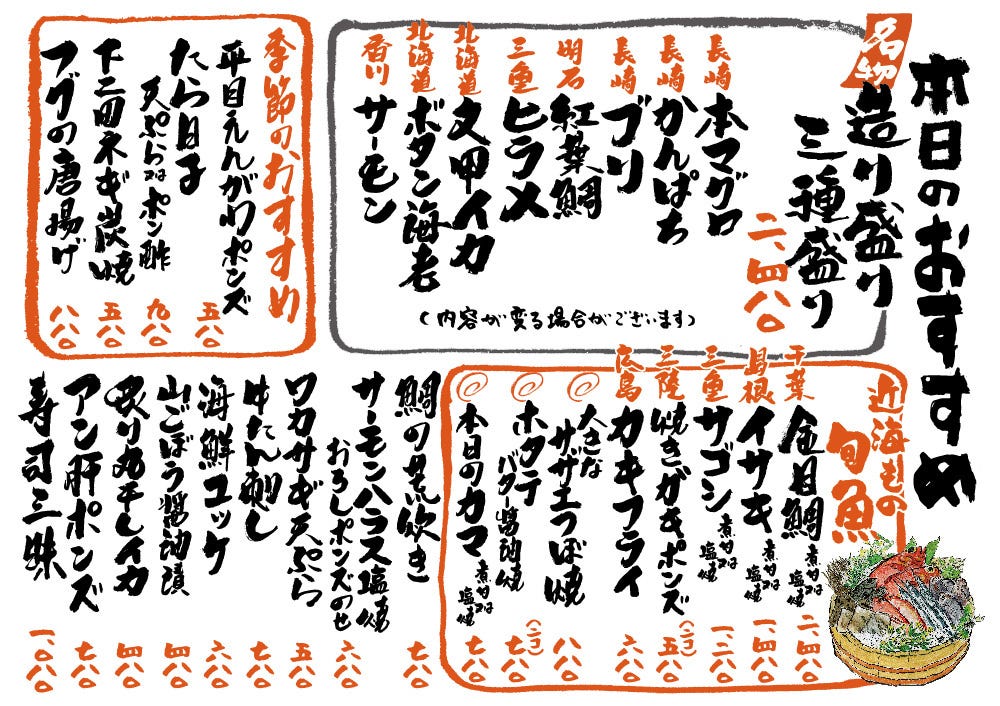 本日のおすすめ
名物
造り盛り
三種盛り
二、四八〇
長崎 本マグロ
長崎 かんぱち
長崎 ブリ
明石 紅葉鯛
三重 ヒラメ
北海道 文甲イカ
北海道 ボタン海老
香川 サーモン
(内容が変る場合がございます)
季節のおすすめ
平目えんがわポンズ 五八〇
たら白子
天ぷら又はポン酢 九八〇
下仁田ネギ炭焼 五八〇
フグの唐揚げ 八八〇
近海もの
旬魚
千葉 金目鯛 煮付又は塩焼 二、四八〇
島根 イサキ 煮付又は塩焼 一、四八〇
三重 サゴシ 煮付又は塩焼 一、二八〇
三陸 焼きガキポンズ (二コ) 五八〇
広島 カキフライ 六八〇
大きな
サザエつぼ焼 八八〇
ホタテ
バター醤油焼 (二コ) 七八〇
本日のカマ 煮付又は塩焼 七八〇
鯛の荒炊き 七八〇
サーモンハラス塩焼
おろしポンズのせ 六八〇
ワカサギ天ぷら 五八〇
牛たん刺し 七八〇
海鮮ユッケ 六八〇
山ごぼう醤油漬 四八〇
炙り丸干しイカ 四八〇
アン肝ポンズ 七八〇
寿司三昧 一、〇八〇